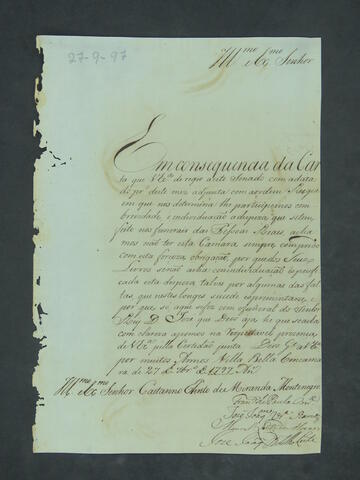 27-9-97
Ill.mo e Ex.mo Senhor
Em consequencia da Car
ta que V. Ex.ª dirigio a este Senado com a data
do pr. deste mez adjunta com a ordem Regia
em que nos determina lhe participemos com
brevidade e individuação a despeza que se tem
feito nos funerais das Pessoas Reais acha
mos não ter esta Camara sempre comprido
com esta forçoza obrigação, por que dos Seus
Livros senão acha com individuação especifi
cada esta despeza talvez por algumas das fal
tas, que nestes longes sucede experimentar-se, e
por que só aqui se fez o funeral do Senhor
Rey D. Joze que Deos aja, he que se acha
com clareza a pomos na Respeitavel prezença
de V. Ex.ª pella Certidão junta. Deos G.e a V. Ex.ª
por muitos Annos Villa Bella em Cama
ra de 27 de 9br.º de 1797
Ill.mo e Ex.mo Senhor Caetanno Pinto de Miranda Montenegro
Fran.co de Paula
Joze Joaq.m
Manoel
Joze Joaq.m